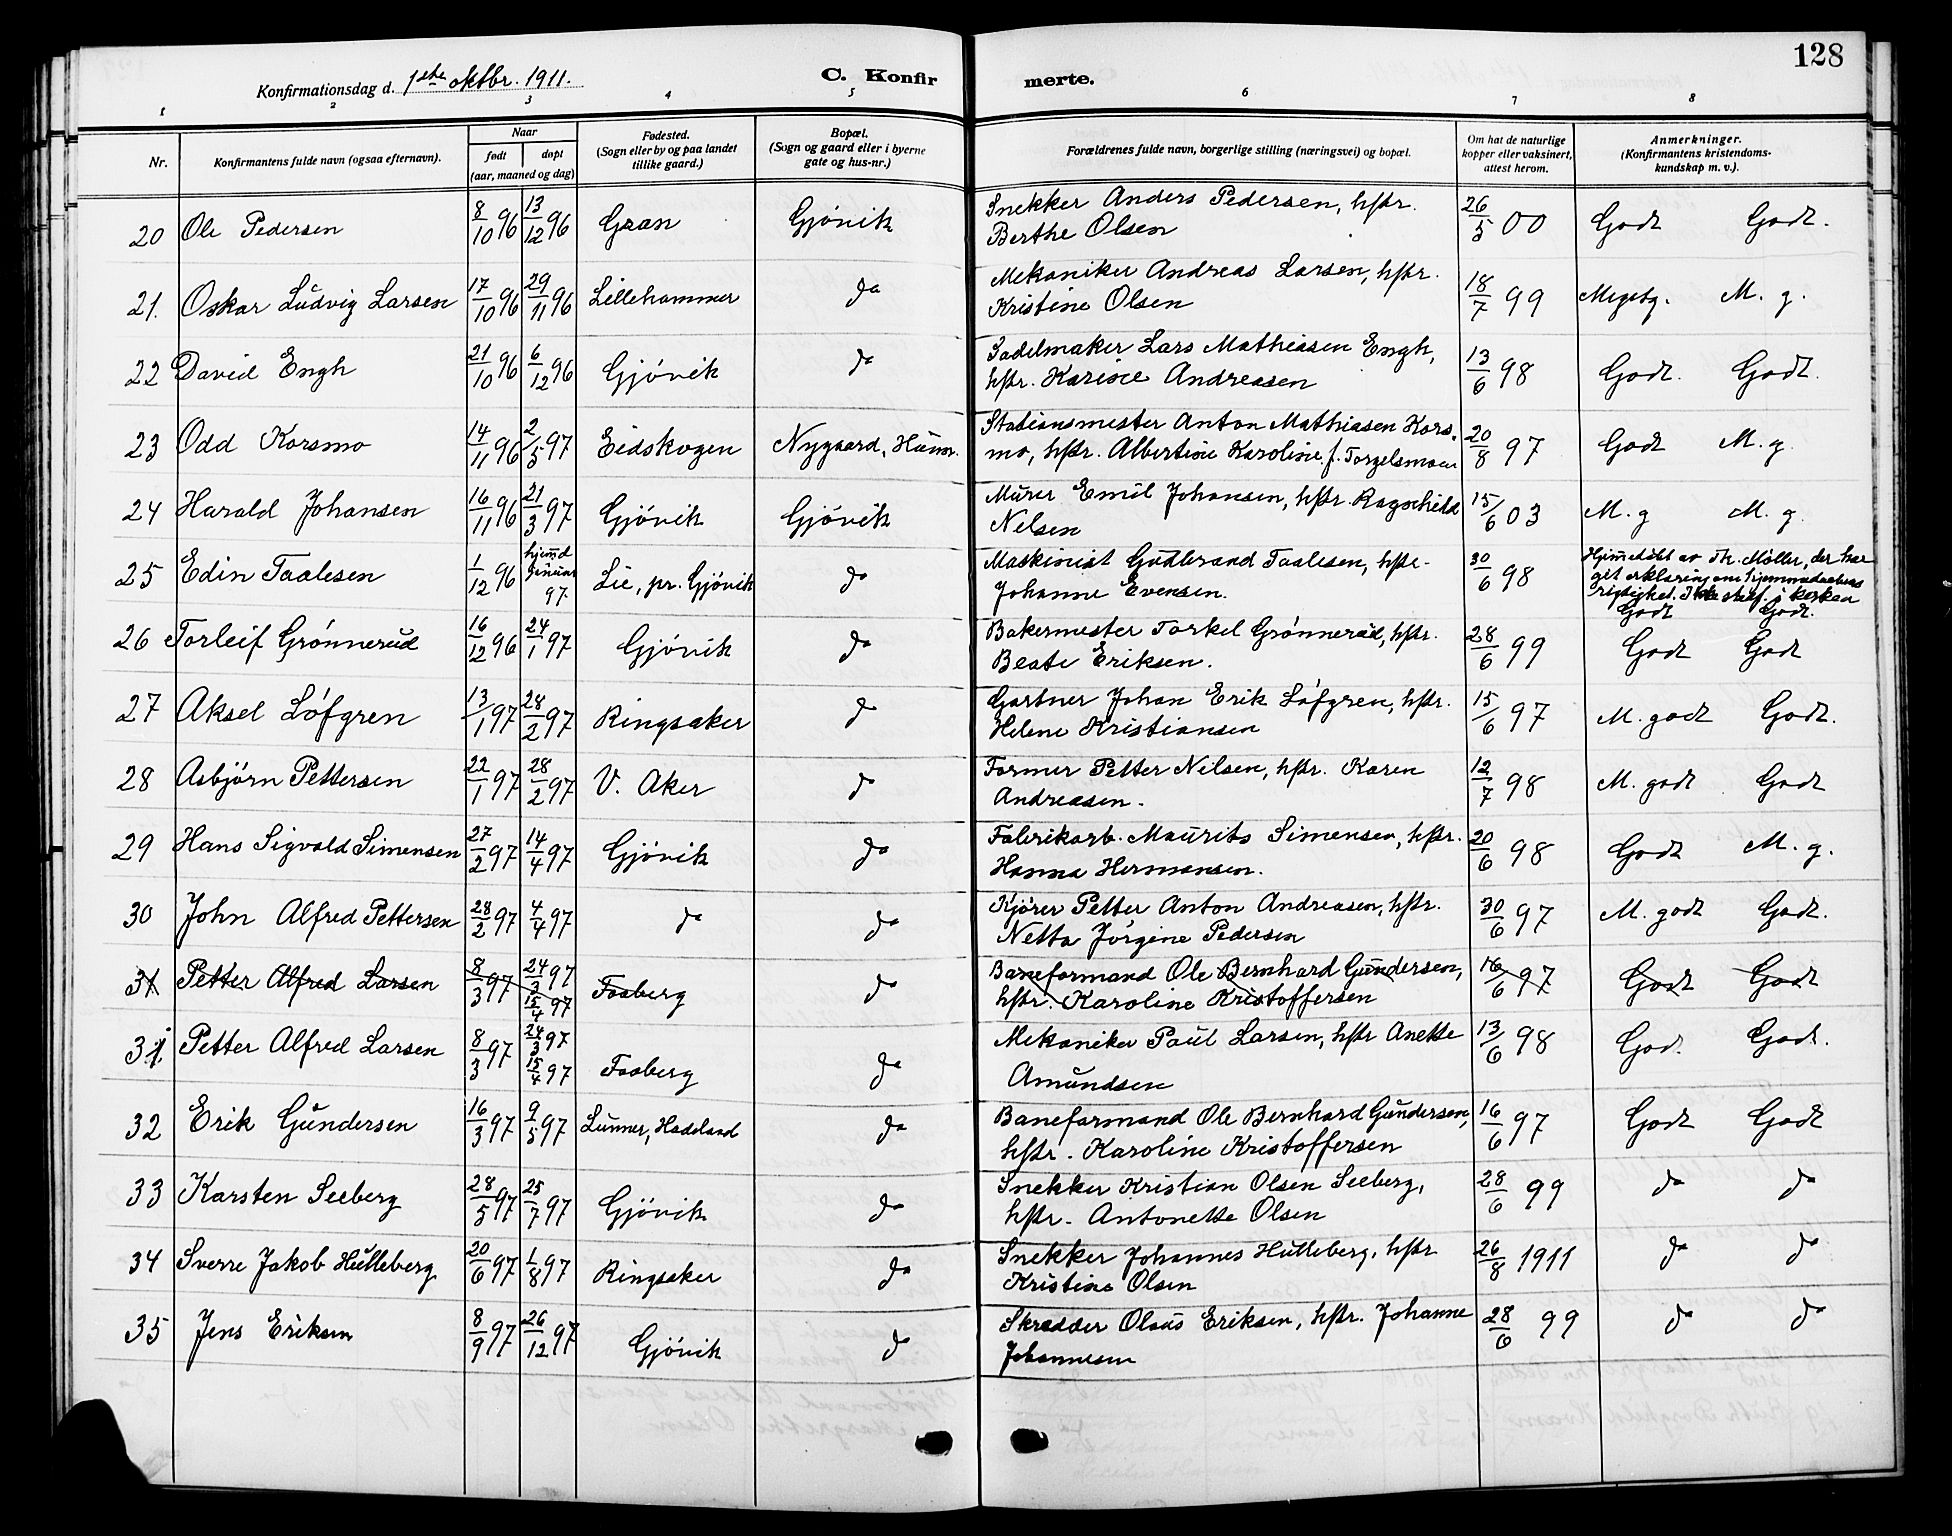 128
Konfirmationsdag d. 1ste oktbr. 1911.
C. Konfirmerte.
1 2 3 4 5 6 7 8
Nr.
Konfirmantens fulde navn (ogsaa efternavn).
Naar
født døpt
(aar, maaned og dag)
Fødested.
(Sogn eller by og paa landet
tillike gaard.)
Bopæl.
(Sogn og gaard eller i byerne
gate og hus-nr.)
Forældrenes fulde navn, borgerlige stilling (næringsvei) og bopæl.
Om hat de naturlige
kopper eller vaksinert,
attest herom.
Anmerkninger.
(Konfirmantens kristendoms-
kundskap m. v.).
20 Ole Pedersen 8/10 96 13/12 96 Gran Gjövik Snekker Anders Pedersen, hstr. 26/5 00 Godt Godt.
Berthe Olsen
21. Oskar Ludvig Larsen 17/10 96 29/11 96 Lillehammer do Mekaniker Andreas Larsen, hstr. 18/7 99 Megetg. M. g.
Kristine Olsen
22 David Engh 21/10 96 6/12 96 Gjövik do Sadelmaker Lars Mathiasen Engh, 13/6 98 Godt. Godt.
hstr. Karine Andreasen
23 Odd Korsmo 14/11 96 2/5 97 Eidskogen Nygaard, Hunn. Stationsmester Anton Mathiasen Kors- 20/8 97 Godt M. g.
mo, hstr. Albertine Karoline f. Torgelsmoen
24 Harald Johansen 16/11 96 21/3 97 Gjövik Gjövik Murer Emil Johansen, hstr. Ragnhild 15/6 03 M. g M. g.
Nelsen
25 Edin Taalesen 1/12 96 hjemd januar 97 Lie, pr. Gjövik do Maskinist Gudbrand Taalesen, hstr. 30/6 98 Hjemedöbt av Th. Møller, der har
git erklæring om hjemmedaabens
rigtighet. Ikke stadf. i kirken
Johanne Evensen. Godt Godt.
26 Torleif Grönnerud 16/12 96 24/1 97 Gjövik do Bakermester Torkel Grönnerud, hstr. 28/6 99 Godt Godt
Beate Eriksen.
27 Aksel Löfgren 13/1 97 28/2 97 Ringsaker do Gartner Johan Erik Löfgren, hstr. 15/6 97 M. godt Godt.
Helene Kristiansen
28 Asbjörn Pettersen 22/1 97 28/2 97 V. Aker do Former Petter Nilsen, hstr. Karen 12/7 98 M. godt Godt
Andreasen.
29 Hans Sigvald Simensen 27/2 97 14/4 97 Gjövik do Fabrikarb. Maurits Simensen, hstr. 20/6 98 Godt M. g.
Hanna Hermansen.
30 John Alfred Pettersen 28/2 97 4/4 97 do do Kjörer Petter Anton Andreasen, hstr. 30/6 97 M. godt Godt.
Netta Jörgine Pedersen
31 Petter Alfred Larsen 8/3 97 24/3 97 15/4 97 Faaberg do Baneformand Ole Bernhard Gundersen, 16/6 97 Godt Godt
hstr. Karoline Kristoffersen
31 Petter Alfred Larsen 8/3 97 24/3 97 15/4 97 Faaberg do Mekaniker Paul Larsen, hstr Anette 13/6 98 God. Godt.
Amundsen
32 Erik Gundersen 16/3 97 9/5 97 Lunner, Hadeland do Baneformand Ole Bernhard Gundersen, 16/6 97 Godt Godt
hstr. Karoline Kristoffersen
33 Karsten Seeberg 28/5 97 25/7 97 Gjövik do Snekker Kristian Olsen Seeberg, 28/6 99 do do
hstr. Antonette Olsen
34 Sverre Jakob Hulleberg 20/6 97 1/8 97 Ringsaker do Snekker Johannes Hulleberg, hstr 26/8 1911 do do
Kristine Olsen
35 Jens Eriksen 8/9 97 26/12 97 Gjövik do Skrædder Olaus Eriksen, hstr. Johanne 28/6 99 do do
Johannesen